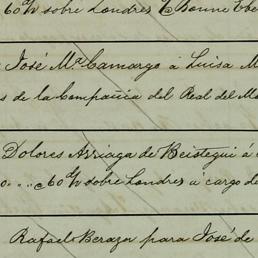 60 d/v sobre Londres
José Ma. Camargo á Luisa M
s de la Compañia del Real del Mo
Dolores Arriaga de Beistegui á
60 d/v sobre Londres á cargo de
Rafael Beraza para José de